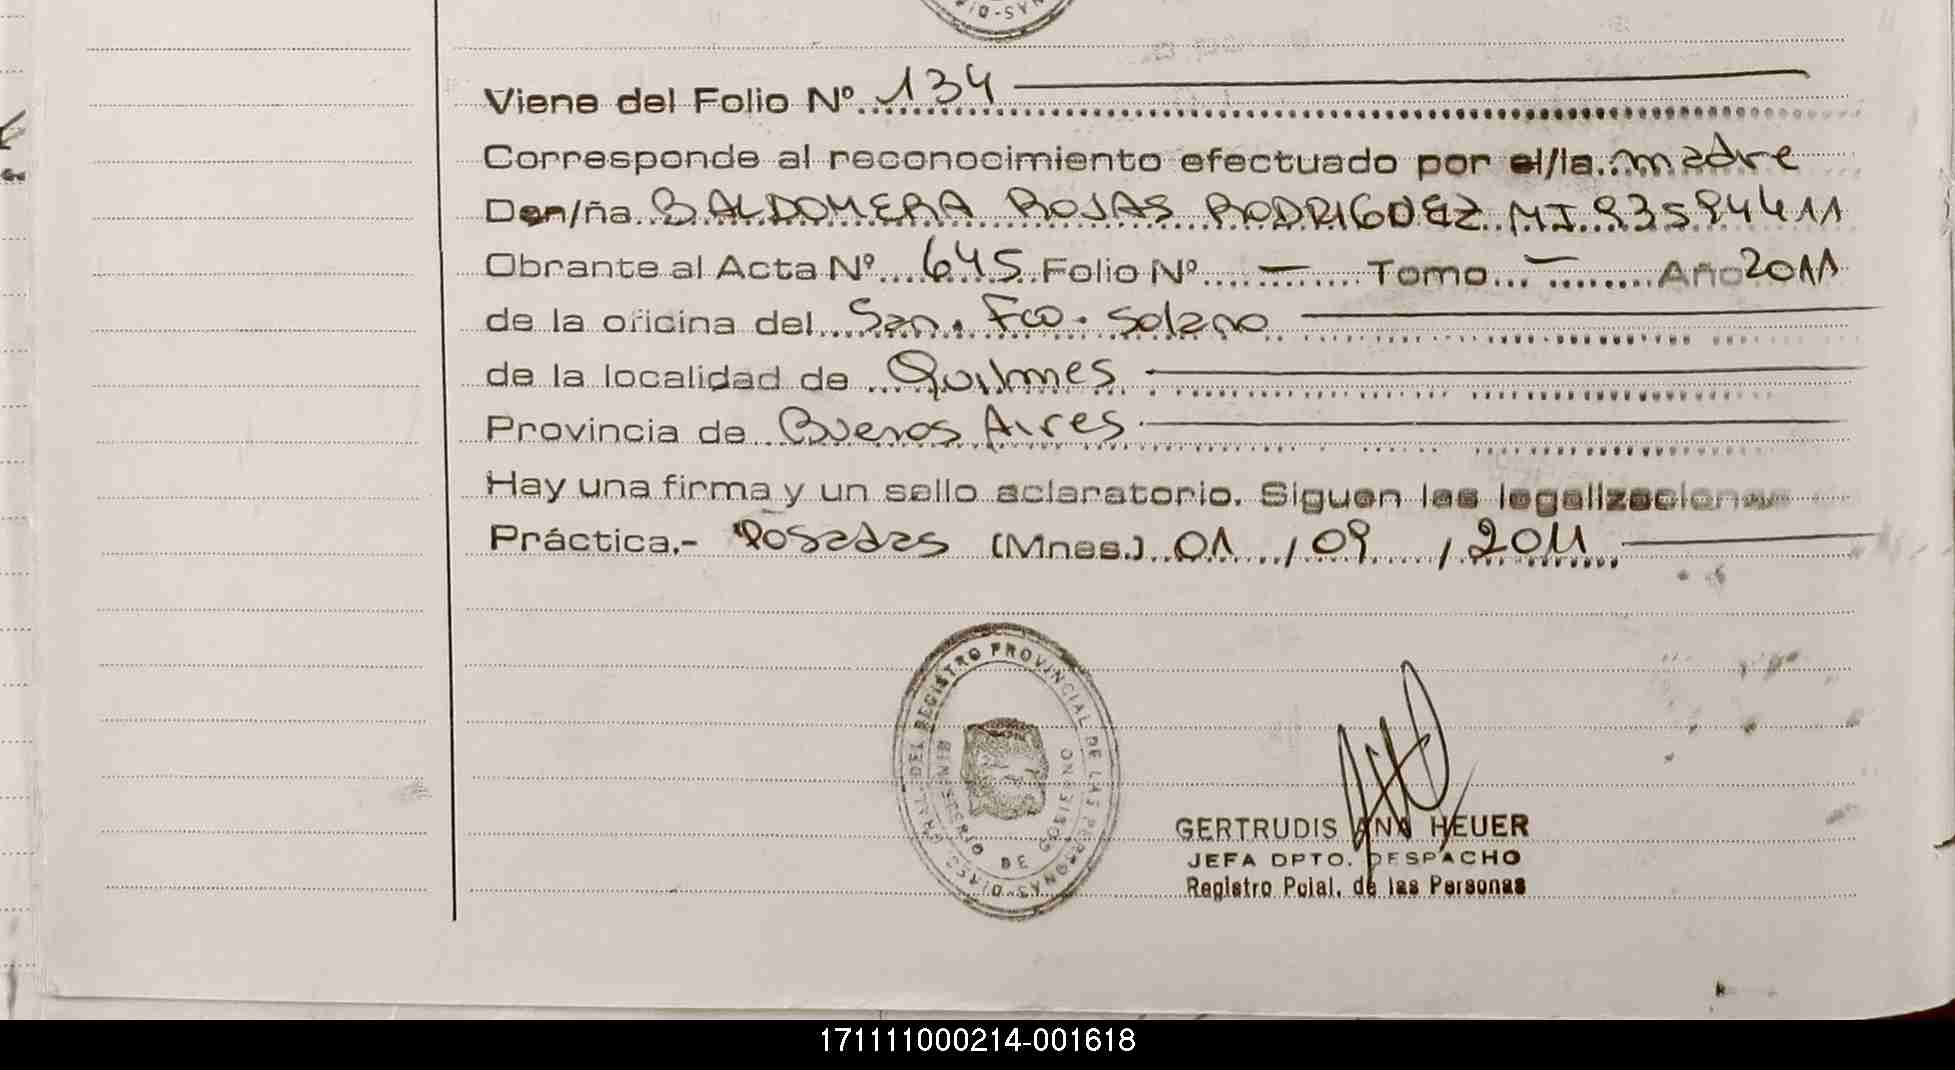 Viene del Folio Nº 134
Corresponde al reconocimiento efectuado por el/la madre
Don/ña BALDOMERA ROJAS RODRIGUEZ MI 93594411
Obrante al Acta Nº 645 Folio Nº — Tomo — Año 2011
de la oficina del San. Fco. Solano
de la localidad de Quilmes
Provincia de Buenos Aires
Hay una firma y un sello aclaratorio. Siguen las legalizaciones
Práctica.- Posadas (Mnes.) 01 / 09 / 2011
DEL REGISTRO PROVINCIAL DE LAS PERSONAS
MINISTERIO DE GOBIERNO
GERTRUDIS ANA HEUER
JEFA DPTO. DESPACHO
Registro Pcial. de las Personas
171111000214-001618